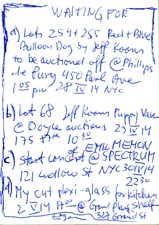 WAITING FOR
a) Lots 254+255 Red + Blue
Balloon Dog by Jeff Koons
to be auctioned off @ Phillips
de Pury 450 Park Ave
pm 28 IV 14 NYC
b) Lot 68 Jeff Koons Puppy Vase
@ Doyle auctions 23 IV 14
175 E 10
of EMIL MEMON
c) Start Concert @ SPECTRUM
121 Ludlow St NYC 30 IV 14
22 30
d) My cut plexi-glass for kitchen
shelf
2 V 14 17 00 @ Grand
327 Grand St